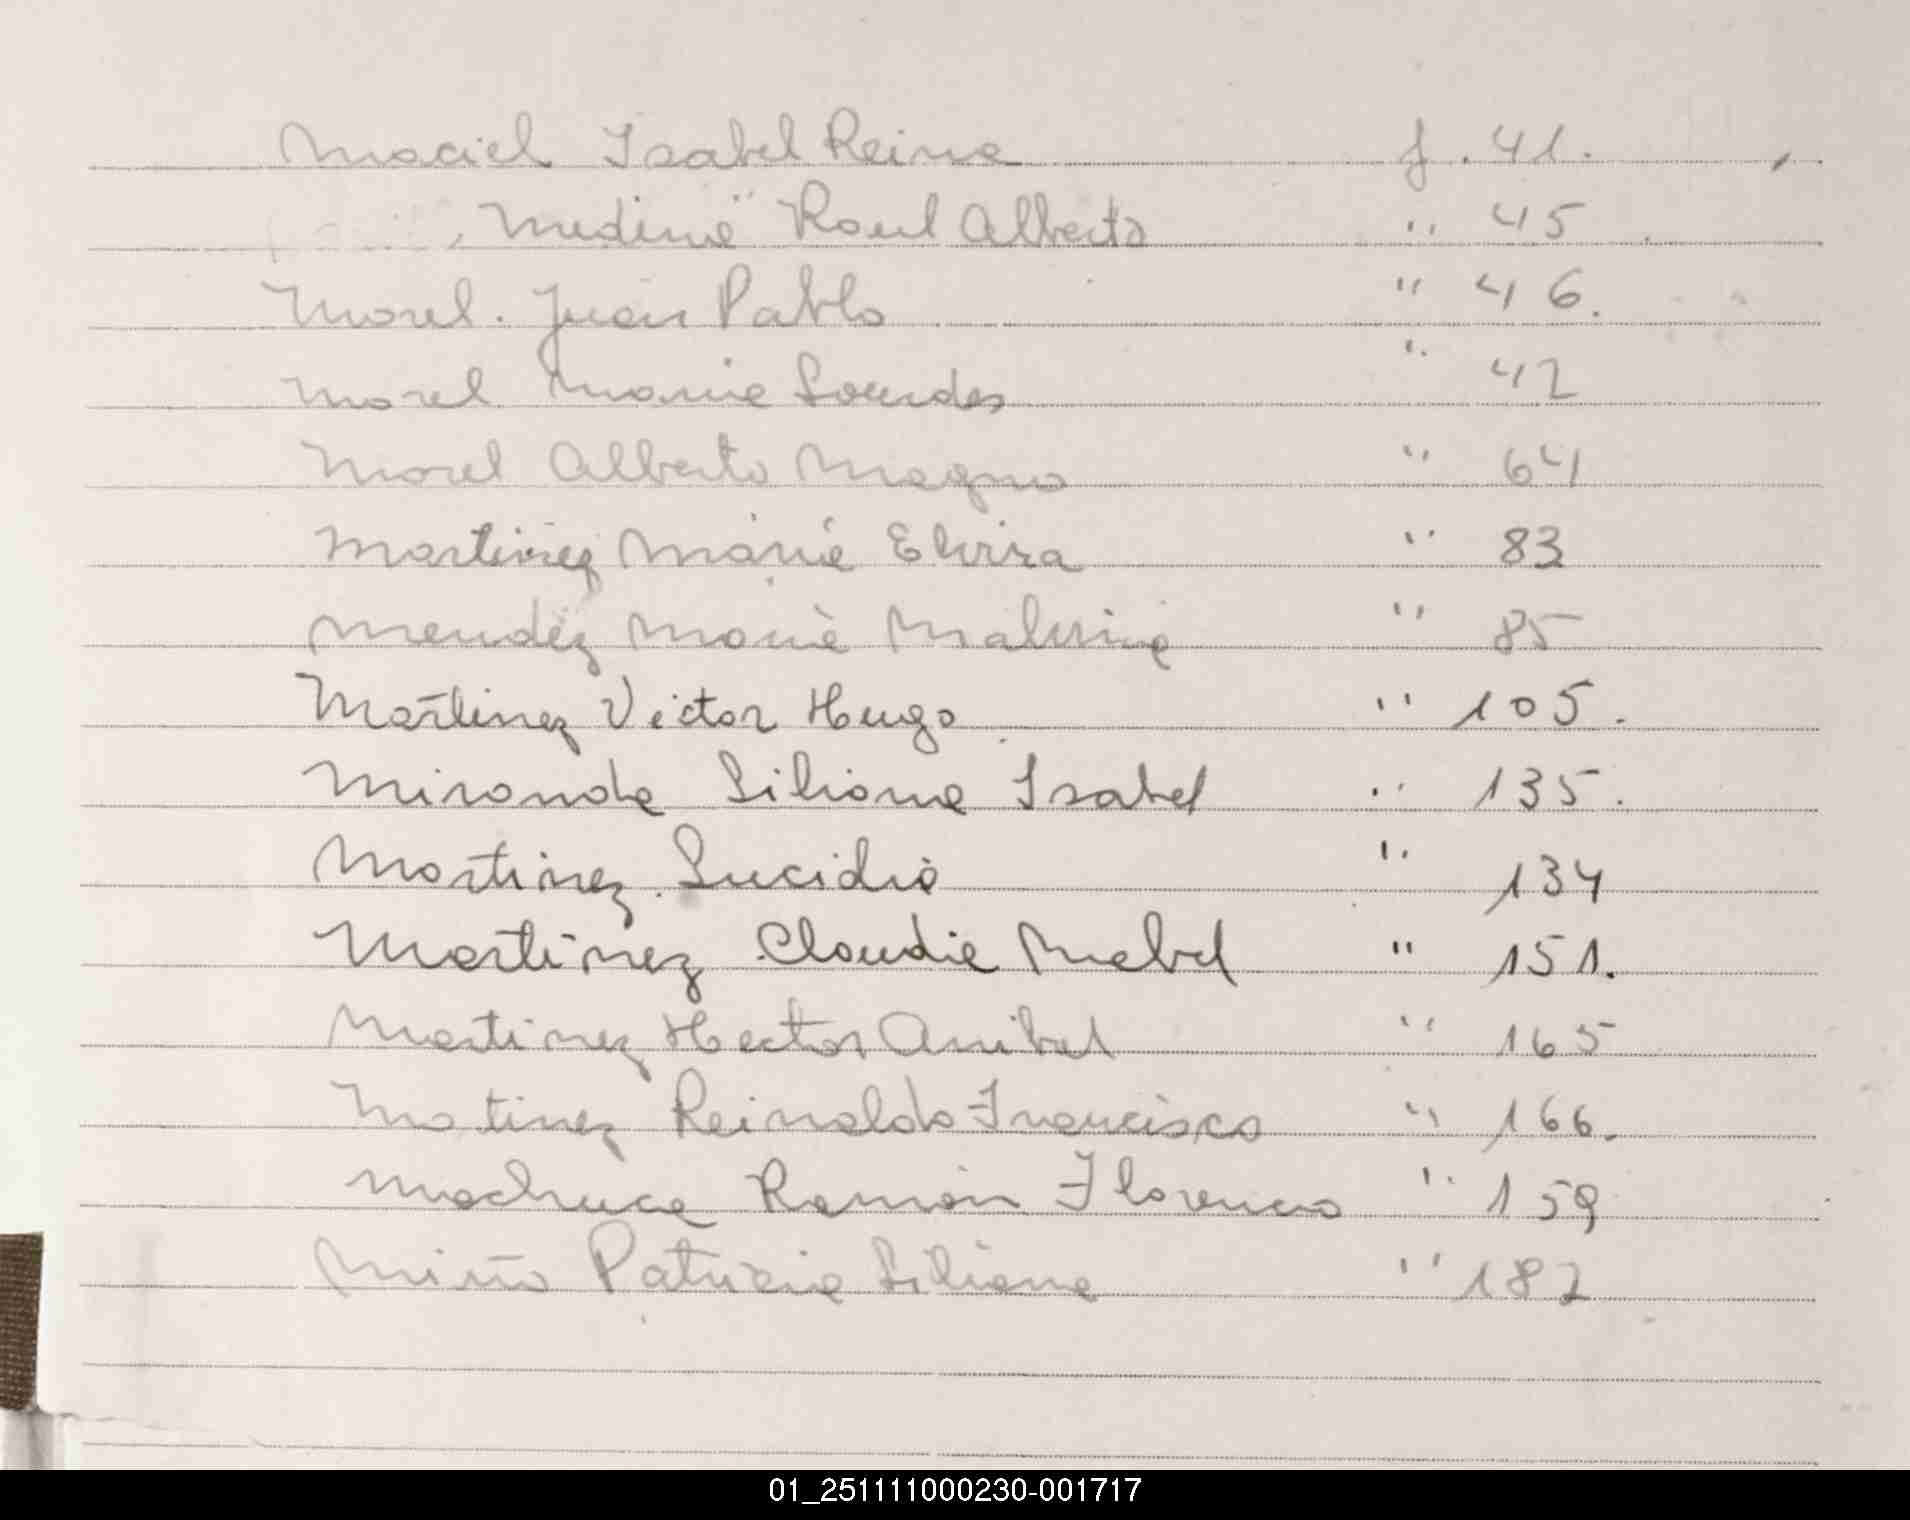 Maciel Isabel Reina f. 41.
Medina Raul Alberto " 45
Morel. Juan Pablo " 46.
Morel Maria Lourdes " 42
Morel Alberto Magno " 64
Martinez Maria Elvira " 83
Mendez Maria Malvina " 85
Martinez Victor Hugo " 105.
Miranda Liliana Isabel " 135.
Martinez Lucidia " 134
Martinez Claudia Mabel " 151.
Martinez Hector Anibal " 165
Matinez Reinaldo Francisco " 166.
Machuca Ramón Florencio " 159
Miño Patricia Liliana " 182
01_251111000230-001717